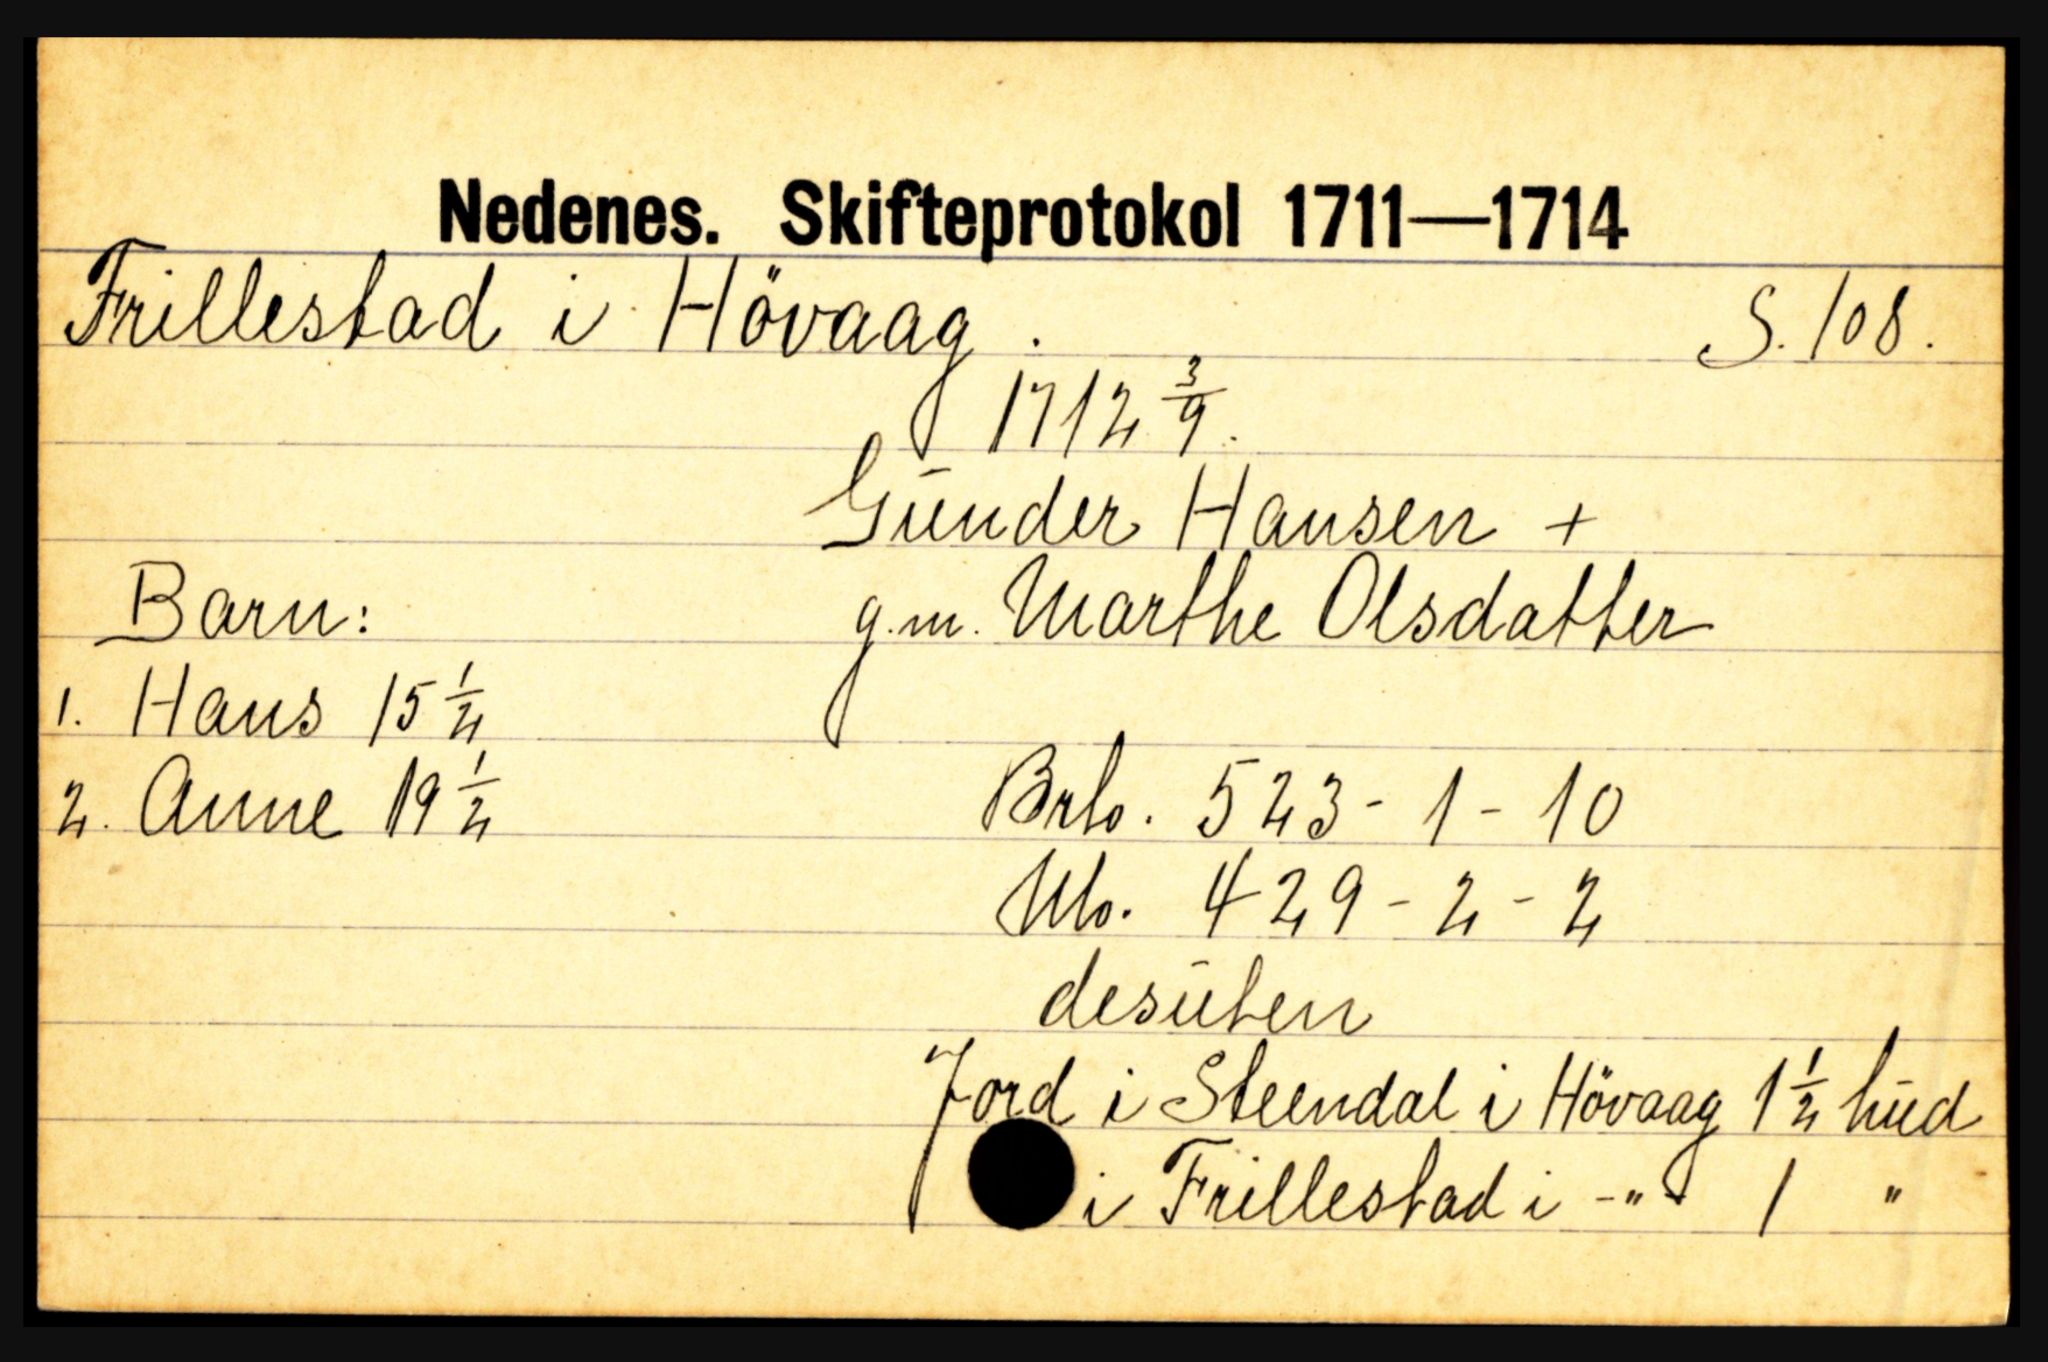 Nedenes. Skifteprotokol 1711—1714
Frillestad i Hövaag. S. 108.
1712 3/9.
Gunder Hansen +
g.m. Marthe Olsdatter
Barn:
1. Hans 15 1/2
2. Anne 19 1/2
Brlo. 523 - 1 - 10
Nlo. 429 - 2 - 2
desuten
Jord i Steendal i Hövaag 1 1/2 hud
i Frillestad i -"- 1 "